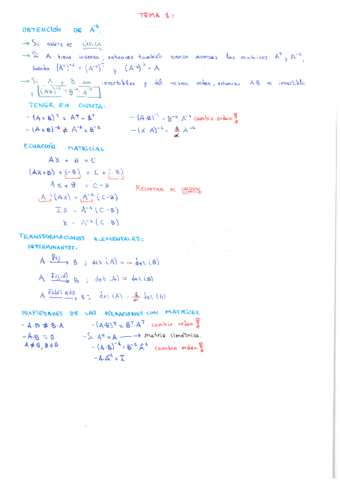 TEMA 1:
OBTENCIÓN DE A⁻¹
→ Si existe es ÚNICA
→ Si A tiene inversa, entonces también serán inversas las matrices Aᵀ y A⁻¹,
siendo (Aᵀ)⁻¹ = (A⁻¹)ᵀ y (A⁻¹)⁻¹ = A
→ Si A y B son invertibles y del mismo orden, entonces AB es invertible
y (AB)⁻¹ = B⁻¹ A⁻¹
TENER EN CUENTA:
- (A+B)ᵀ = Aᵀ + Bᵀ
- (A·B)⁻¹ = B⁻¹ A⁻¹ cambio orden!!
- (A+B)⁻¹ ≠ A⁻¹ + B⁻¹
- (α A)⁻¹ = 1/α A⁻¹
ECUACIÓN MATRICIAL
AX + B = C
(AX+B) + (-B) = C + (-B)
AX + 0 = C - B
RESPETAR EL ORDEN
A⁻¹ (AX) = A⁻¹ (C-B)
IX = A⁻¹ (C-B)
X = A⁻¹ (C-B)
TRANSFORMACIONES ELEMENTALES:
DETERMINANTES:
A → B ; det (A) = - det (B)
A → B ; det (A) = det (B)
A → B ; det (A) = 1/α det (B)
PROPIEDADES DE LAS OPERACIONES CON MATRICES.
- A·B ≠ B·A
- (A·B)ᵀ = Bᵀ Aᵀ cambio orden!!
- A·B = 0
- Si Aᵀ = A → matriz simétrica.
A≠0, B≠0
- (A·B)⁻¹ = B⁻¹ A⁻¹ cambio orden!!
- A·A⁻¹ = I